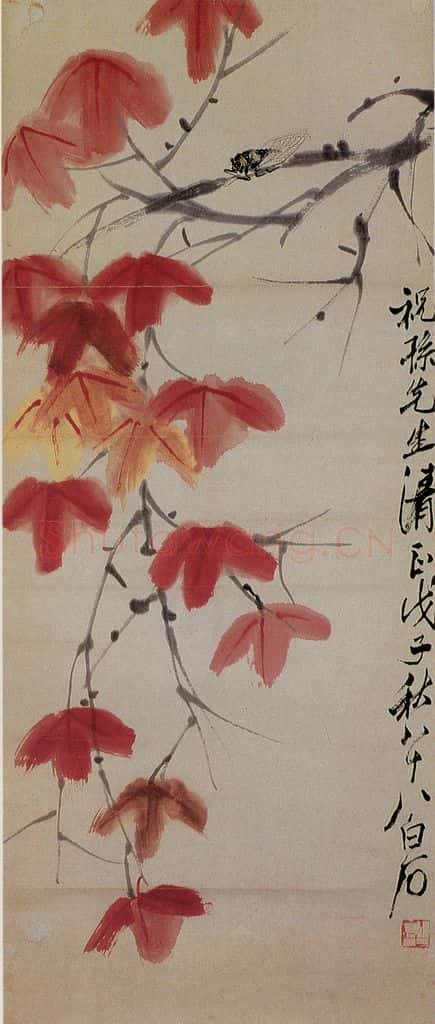 祝孫先生清正戊子秋八十八白石
Shufawang.CN